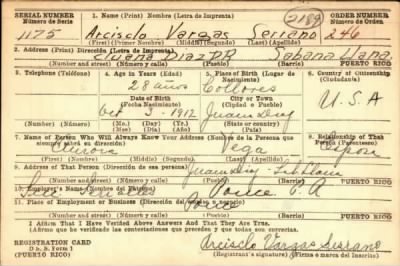 SERIAL NUMBER
Número de Serie
1. Name (Print) Nombre (Letra de Imprenta)
2189
ORDER NUMBER
Número de Orden
1175
Arcisclo Vargas Serrano
246
(First) (Primer Nombre) (Middle) (Segundo) (Last) (Apellido)
2. Address (Print) Dirección (Letra de Imprenta)
Juana Diaz PR Sabana Llana
(Number and street) (Número y calle) (Town) (Pueblo) PUERTO RICO
3. Telephone (Teléfono)
4. Age in Years (Edad)
5. Place of Birth (Lugar de Nacimiento)
6. Country of Citizenship (Ciudadanía)
28 años
Collores
Date of Birth
(Fecha Nacimiento)
City or Town
(Ciudad o Pueblo)
U.S.A
Oct 3 1912
Juana Diaz
(Mo.) (Day) (Yr.)
(Mes) (Día) (Año)
7. Name of Person Who Will Always Know Your Address (Nombre de la Persona que siempre sabrá su dirección)
8. Relationship of That Person (Parentesco)
Vega
Esposa
(First) (Primer Nombre) (Middle) (Segundo) (Last) (Apellido)
9. Address of That Person (Dirección de esa persona)
Juana Diaz
(Number and street) (Número y calle) (Town) (Pueblo) PUERTO RICO
10. Employer's Name (Nombre del Patrono)
11. Place of Employment or Business (Dirección del empleo o negocio)
Ponce
(Number and street) (Número y calle) (Town) (Pueblo) PUERTO RICO
I Affirm That I Have Verified Above Answers And That They Are True.
Afirmo que he verificado las contestaciones que preceden y que todas son correctas.
REGISTRATION CARD
D. S. S. Form 1
Arcisclo Vargas Serrano
(Registrant's signature) (Firma o marca del Inscrito)